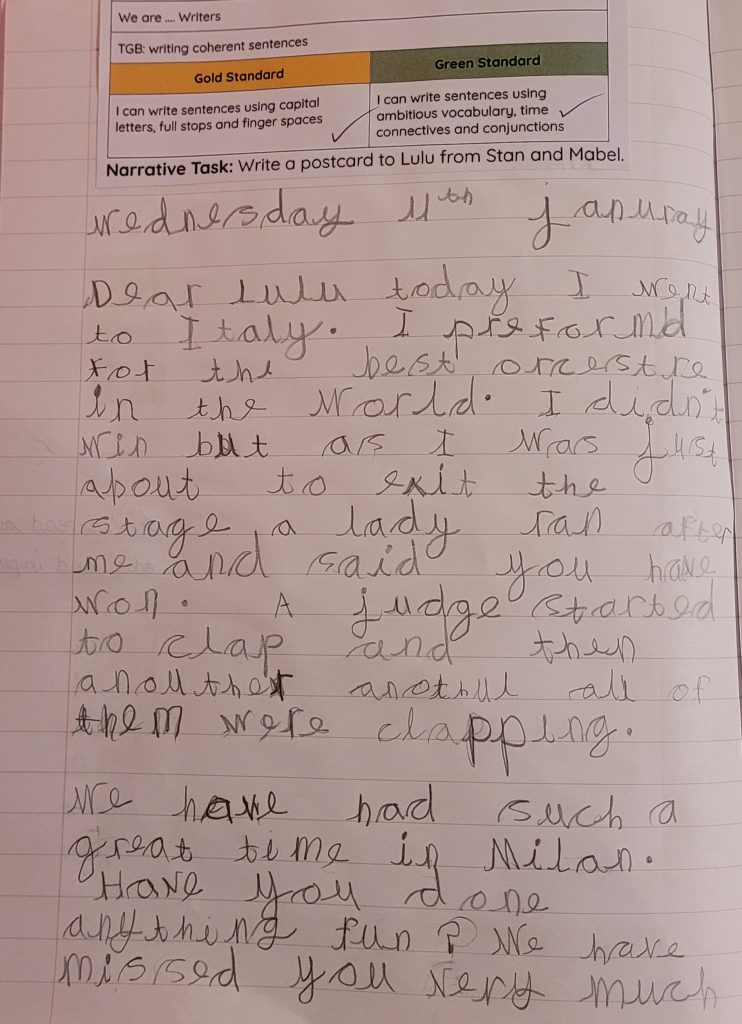 We are .... Writers
TGB: writing coherent sentences
Gold Standard
Green Standard
I can write sentences using capital
letters, full stops and finger spaces
I can write sentences using
ambitious vocabulary, time
connectives and conjunctions
Narrative Task: Write a postcard to Lulu from Stan and Mabel.
Wednesday 11th januray
Dear Lulu today I went
to Italy. I preformd
for the best orcerstre
in the World. I didn't
win but as I was just
about to exit the
stage a lady ran after
me and said you have
won. A judge started
to clap and then
anouther anothul all of
them were clapping.
We have had such a
great time in Milan.
Have you done
anything fun? We have
missed you very much